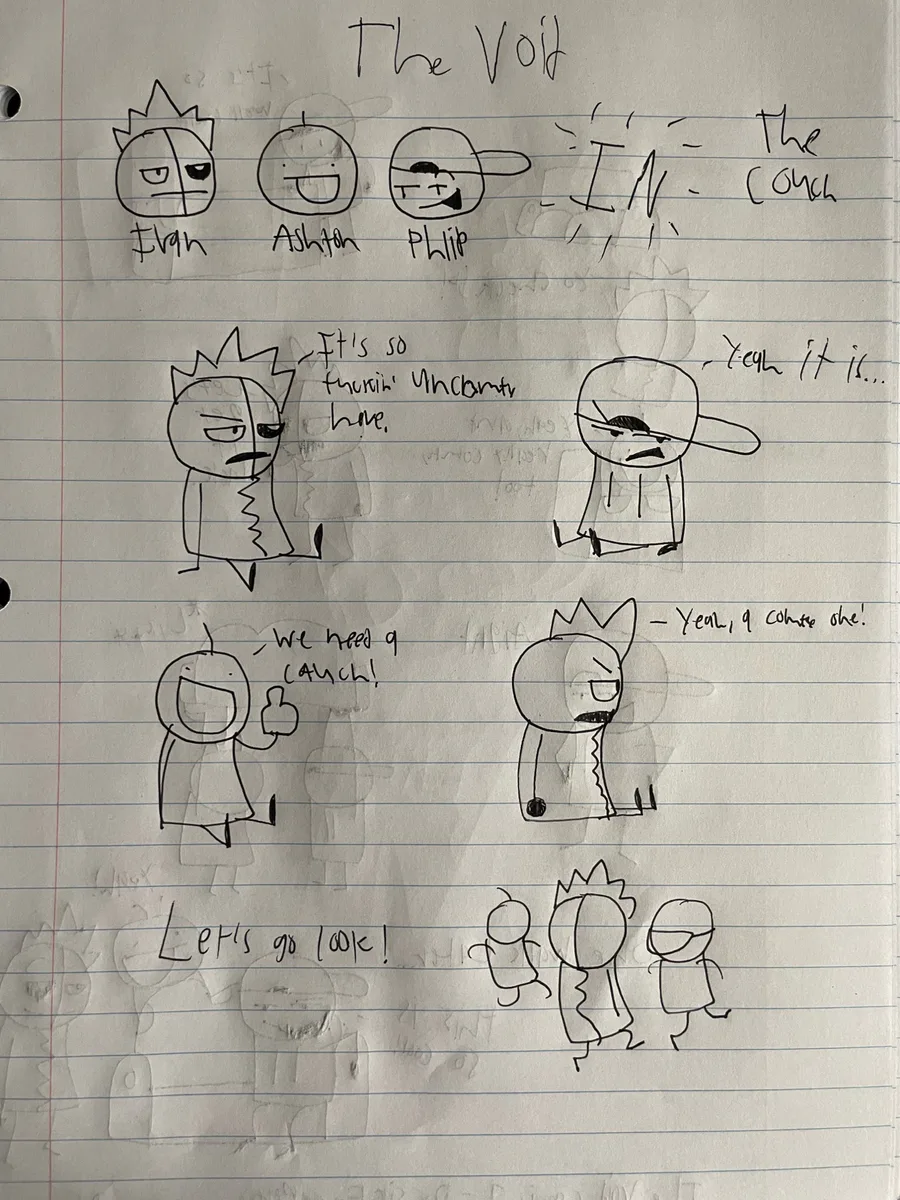 The Void
IN
The
Couch
Ivan
Ashton
Philip
It's so
fuckin' uncomfy
here.
Yeah it is...
We need a
couch!
Yeah, a comfy one!
Let's go look!